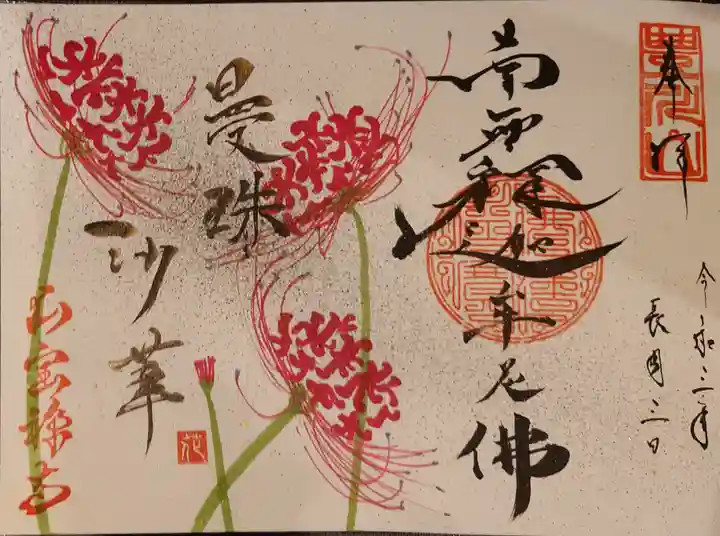 奉拝
令和三年
長月三日
南無釋迦牟尼佛
曼珠
沙華
花